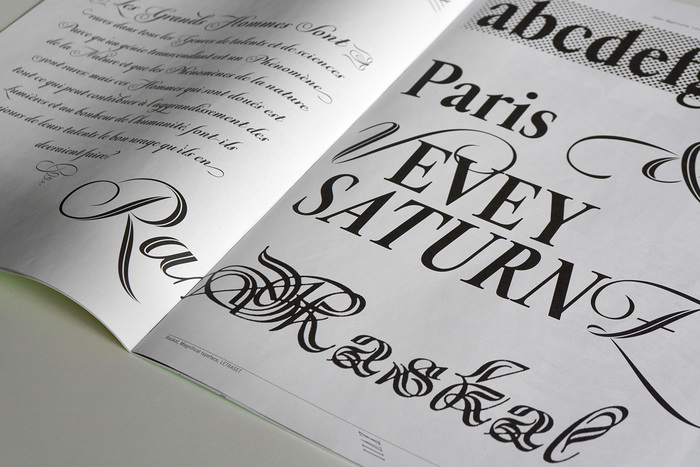 Les Grands Hommes Sont
rares dans tous les Genres de talents et des sciences
Parce que un génie transcendant est un Phénomène
de la Nature et que les Phénomènes de la nature
sont rares. mais ces Hommes qui sont donés est
tout ce qui peut contribuer à l'aggrandissement des
Lumières et au bonheur de l'humanité. font-ils
de leurs talents le bon usage qu'ils en
devraient faire?
Ra
abcdefg
Paris
VEVEY
SATURN
Raskal
Magnifical typeface, LETRASET